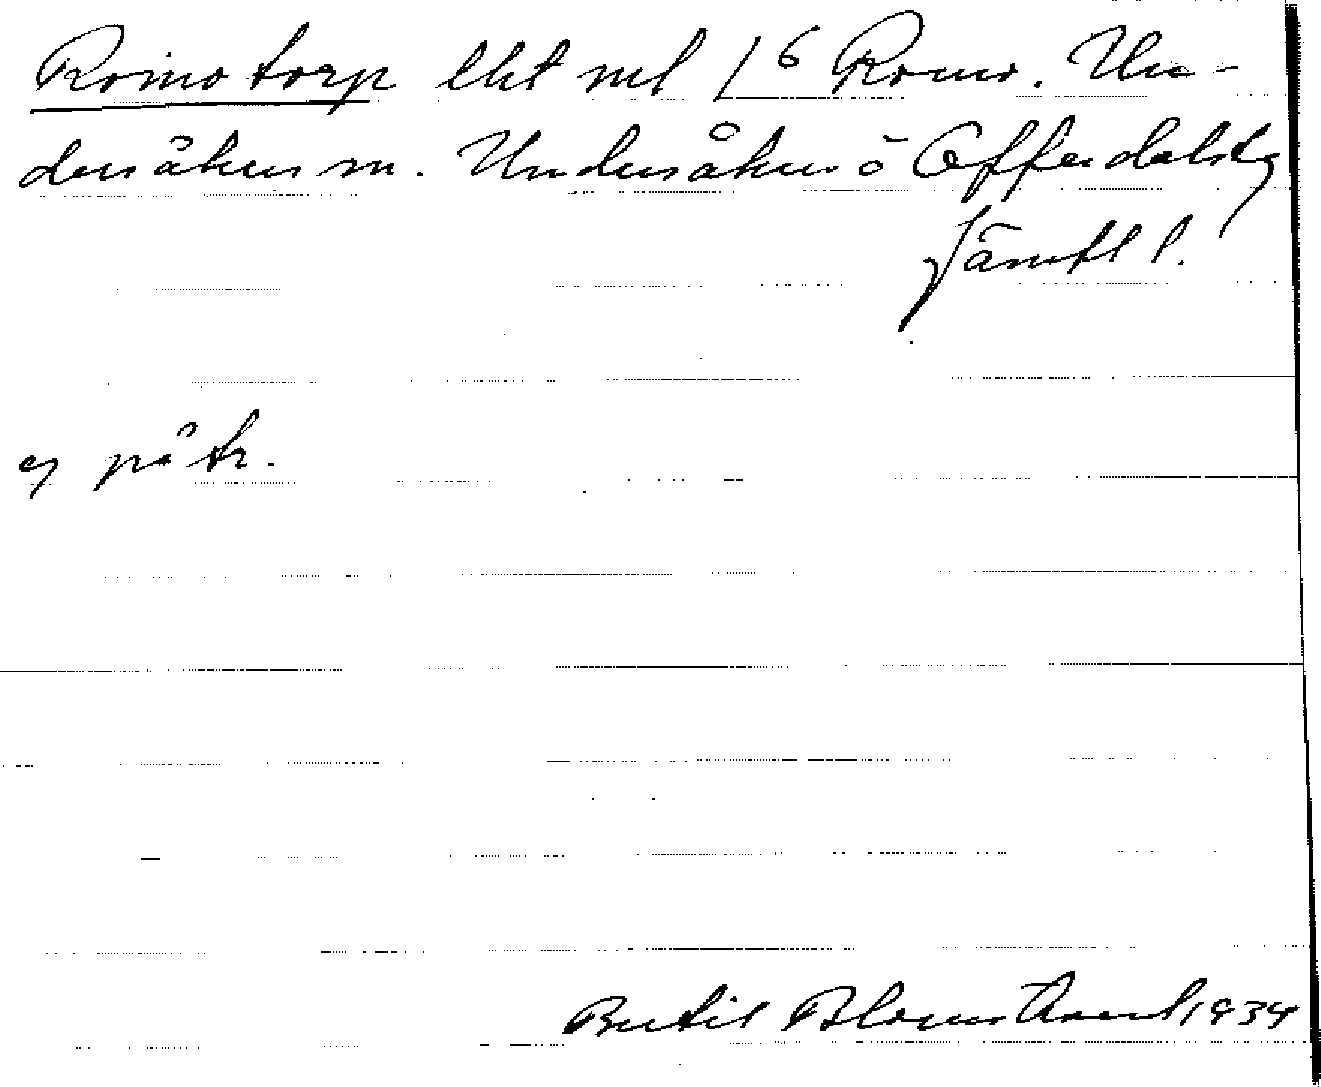 Romotorp lht mf 1⁶ Romo. Un-
dersåkers sn. Undersåkers o Offerdals tg
Jämtl l.
ej påtr.
Bertil Blomstrand 1934